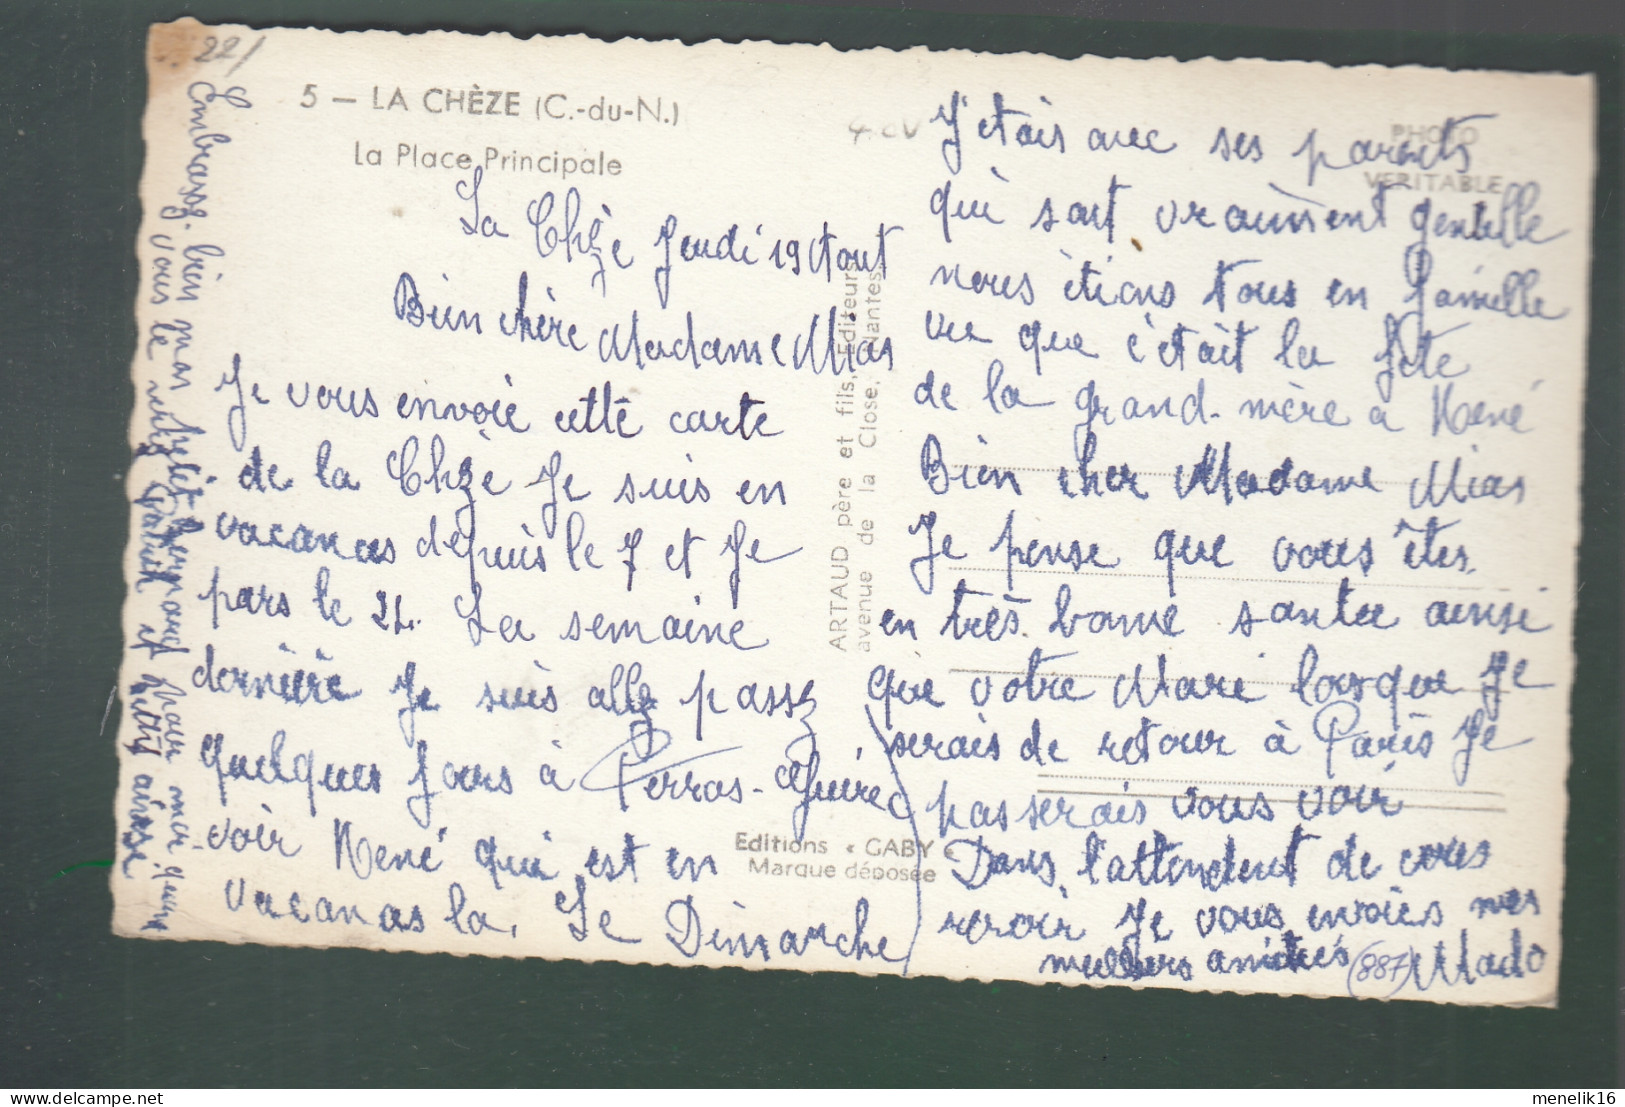 22/
5 — LA CHÈZE (C.-du-N.)
La Place Principale
La Chèze Jeudi 19 Aout
Bien chère Madame Mias
Je vous envoie cette carte
de la Chèze Je suis en
vacances depuis le 7 et Je
pars le 22. La semaine
dernière Je suis allez passz
quelques Jours à Perros-Guirec
voir René qui est en
vacances la. Le Dimanche
J'etais avec ses parents
qui sont vraiment gentille
nous étions tous en famille
vu que c'était la fête
de la grand-mère a René
Bien cher Madame Mias
Je pense que vous êtes
en très bonne santée ainsi
que votre Mari lorsque Je
serais de retour à Paris Je
passerais vous voir
Dans l'attendent de vous
revoir Je vous envoies mes
meilleurs amitiés Mado
(887)
Embrassez bien mon pour moi quand
vous le ainsi
PHOTO
VERITABLE
ARTAUD père et fils, Editeurs
avenue de la Close, Nantes
Editions « GABY »
Marque déposée
menelik16